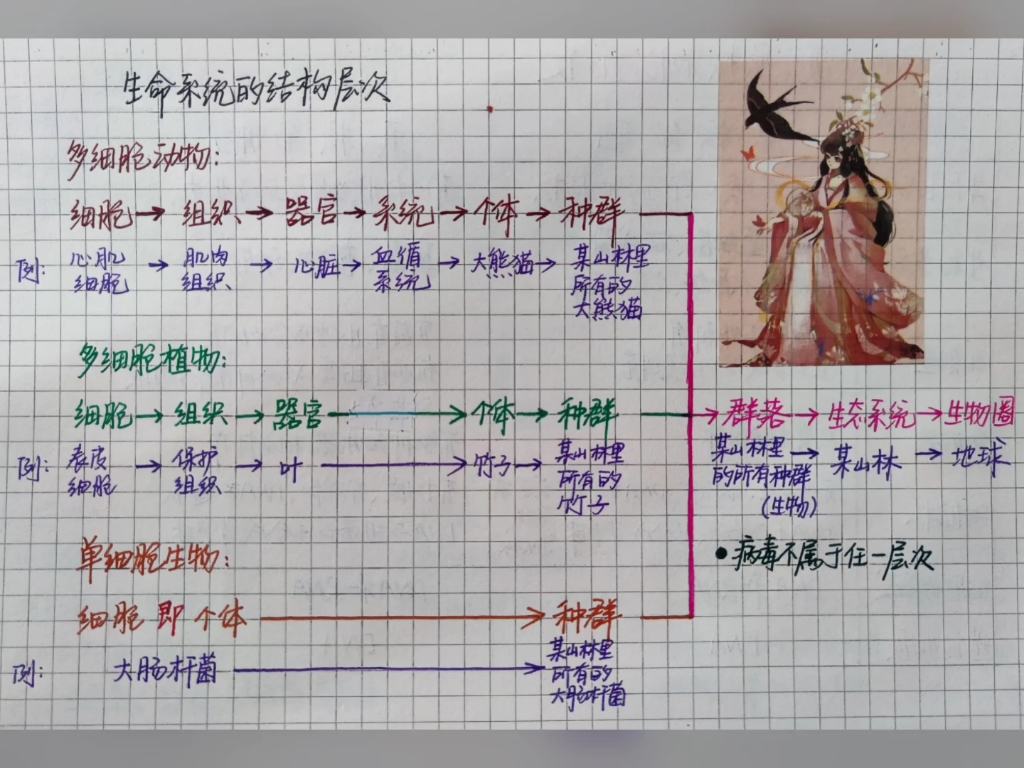 生命系统的结构层次
多细胞动物:
细胞→组织→器官→系统→个体→种群
例: 心肌细胞→肌肉组织→心脏→血循系统→大熊猫→某山林里所有的大熊猫
多细胞植物:
细胞→组织→器官→个体→种群→群落→生态系统→生物圈
例: 表皮细胞→保护组织→叶→竹子→某山林里所有的竹子
某山林里的所有种群(生物)→某山林→地球
•病毒不属于任一层次
单细胞生物:
细胞 即 个体→种群
例: 大肠杆菌→某山林里所有的大肠杆菌